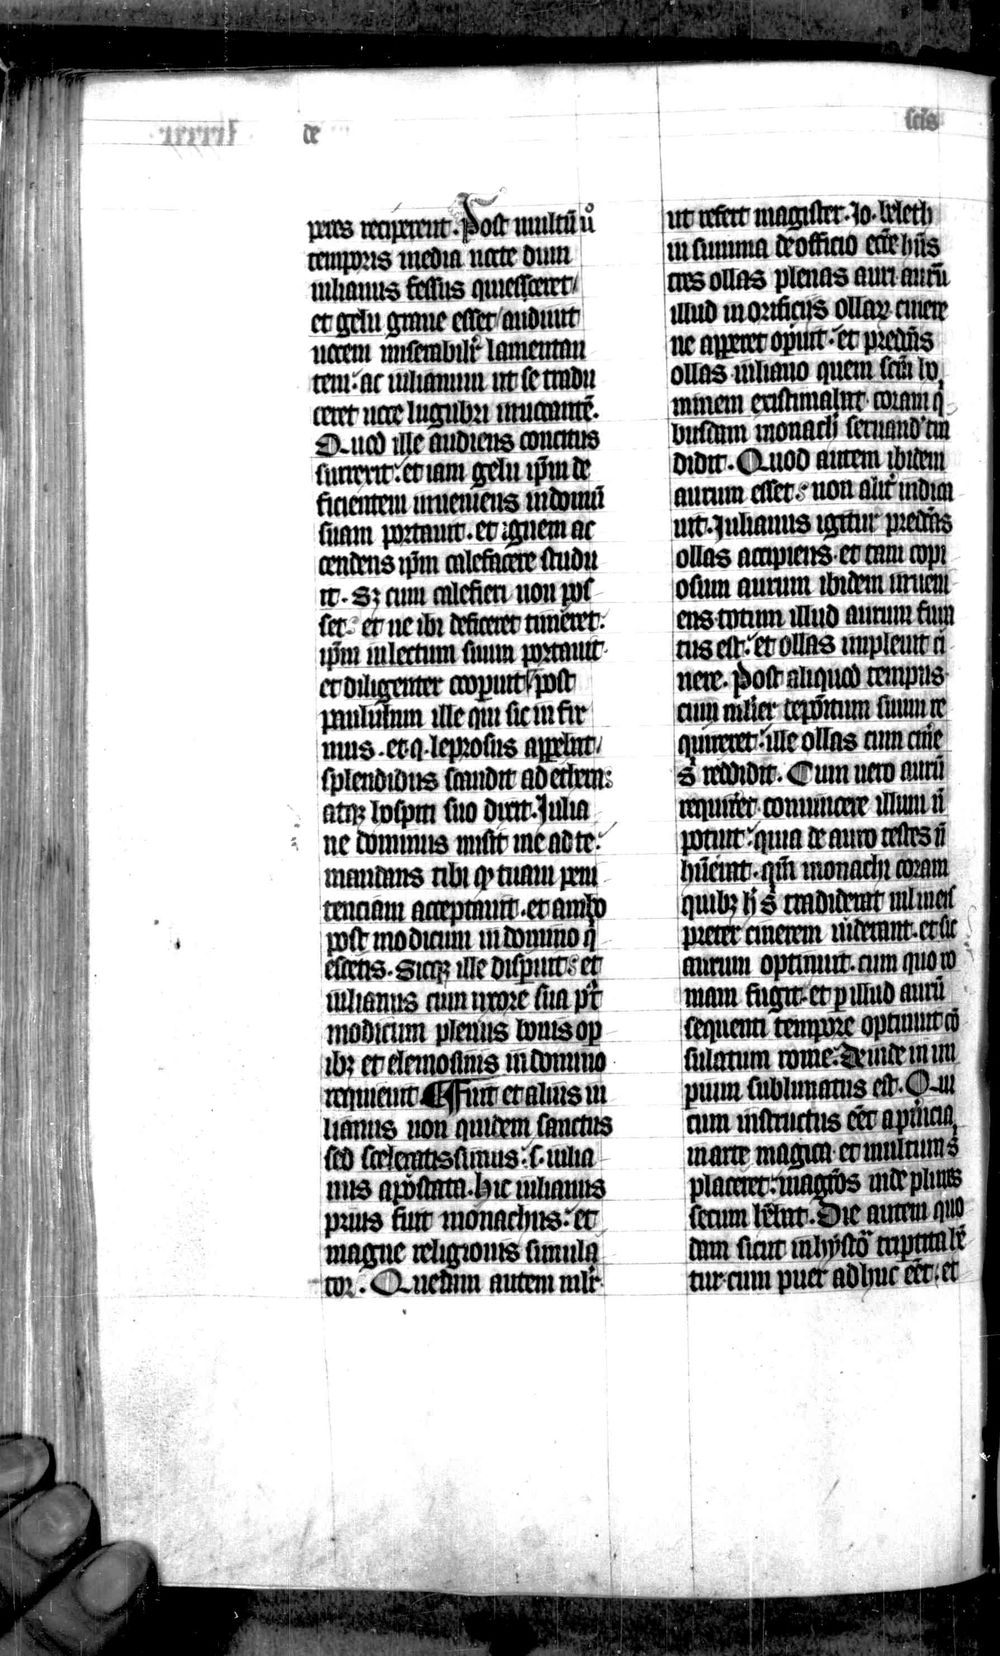 de
scis
peres reciperent. Post multū u᷎o
temporis media nocte dum
iulianus fessus quiesceret/
et gelu graue esset/audiuit
uocem miserabilit̄ lamentan
tem: ac iulianum ut se tradu
ceret uoce lugubri inuocantē.
Quod ille audiens concitus
surrexit: et iam gelu ip̄m de
ficientem inueniens in domū
suam portauit. et ignem ac
cendens ip̄m calefacere studu
it. Sꝫ cum calefieri non pos
set: et ne ibi deficeret timeret:
ip̄m in lectum suum portauit
et diligenter cooperuit/post
paululum ille qui sic infir
mus. et q̄. leprosus apparebat/
splendidus scandit ad ethera:
atqꝫ hospiti suo dixit. Julia
ne dominus misit me ad te:
mandans tibi ꝙ tuam peni
tenciam acceptauit. et ambo
post modicum in domino q̄
escetis. Sicqꝫ ille disparuit: et
iulianus cum uxore sua p᷎t
modicum plenus bonis op
ibꝫ et elemosinis in domino
requieuit. ¶ Fuit et alius iu
lianus non quidem sanctus
sed sceleratissimus: s. iulia
nus apōstata. Hic iulianus
prius fuit monachus: et
magne religionis simula
tor. Quedam autem mlr̄
ut refert magister. Jo. beleth
in summa de officio ecc̄e hn̄s
tres ollas plenas auri aurū
illud in orificijs ollaꝝ cinere
ne appareret opuit: et pred̄cas
ollas iuliano quem sc̄m ho
minem existimabat. coram q̄
busdam monach̄ seruand᷒ tra
didit. Quod autem ibidem
aurum esset: non alit̄ indica
uit. Julianus igitur pred̄cas
ollas accipiens. et tam copi
osum aurum ibidem inueni
ens totum illud aurum fura
tus est: et ollas impleuit ci
nere. Post aliquod tempus
cum mulier depōitum suum re
quireret: ille ollas cum cin̄e
s̄ reddidit. Cum uero aurū
requir̄et conuincere illum n̄
potuit: quia de auro testes n̄
hūerat. qm̄ monachi coram
quibꝫ h̄ s̄ tradiderat nil in eis
preter cinerem uiderant. et sic
aurum optinuit. cum quo ro
mam fugit. et p illud aurū
sequenti tempore optinuit cō
sulatum rome. Deinde in im
perium sublimatus est. Qui
cum instructus eēt a pueritia
in arte magica et multum s̄
placeret: magr̄os inde plures
secum hēbat. Die autem quo
dam sicut in hystō tripertita lē
tur cum puer adhuc eēt. et